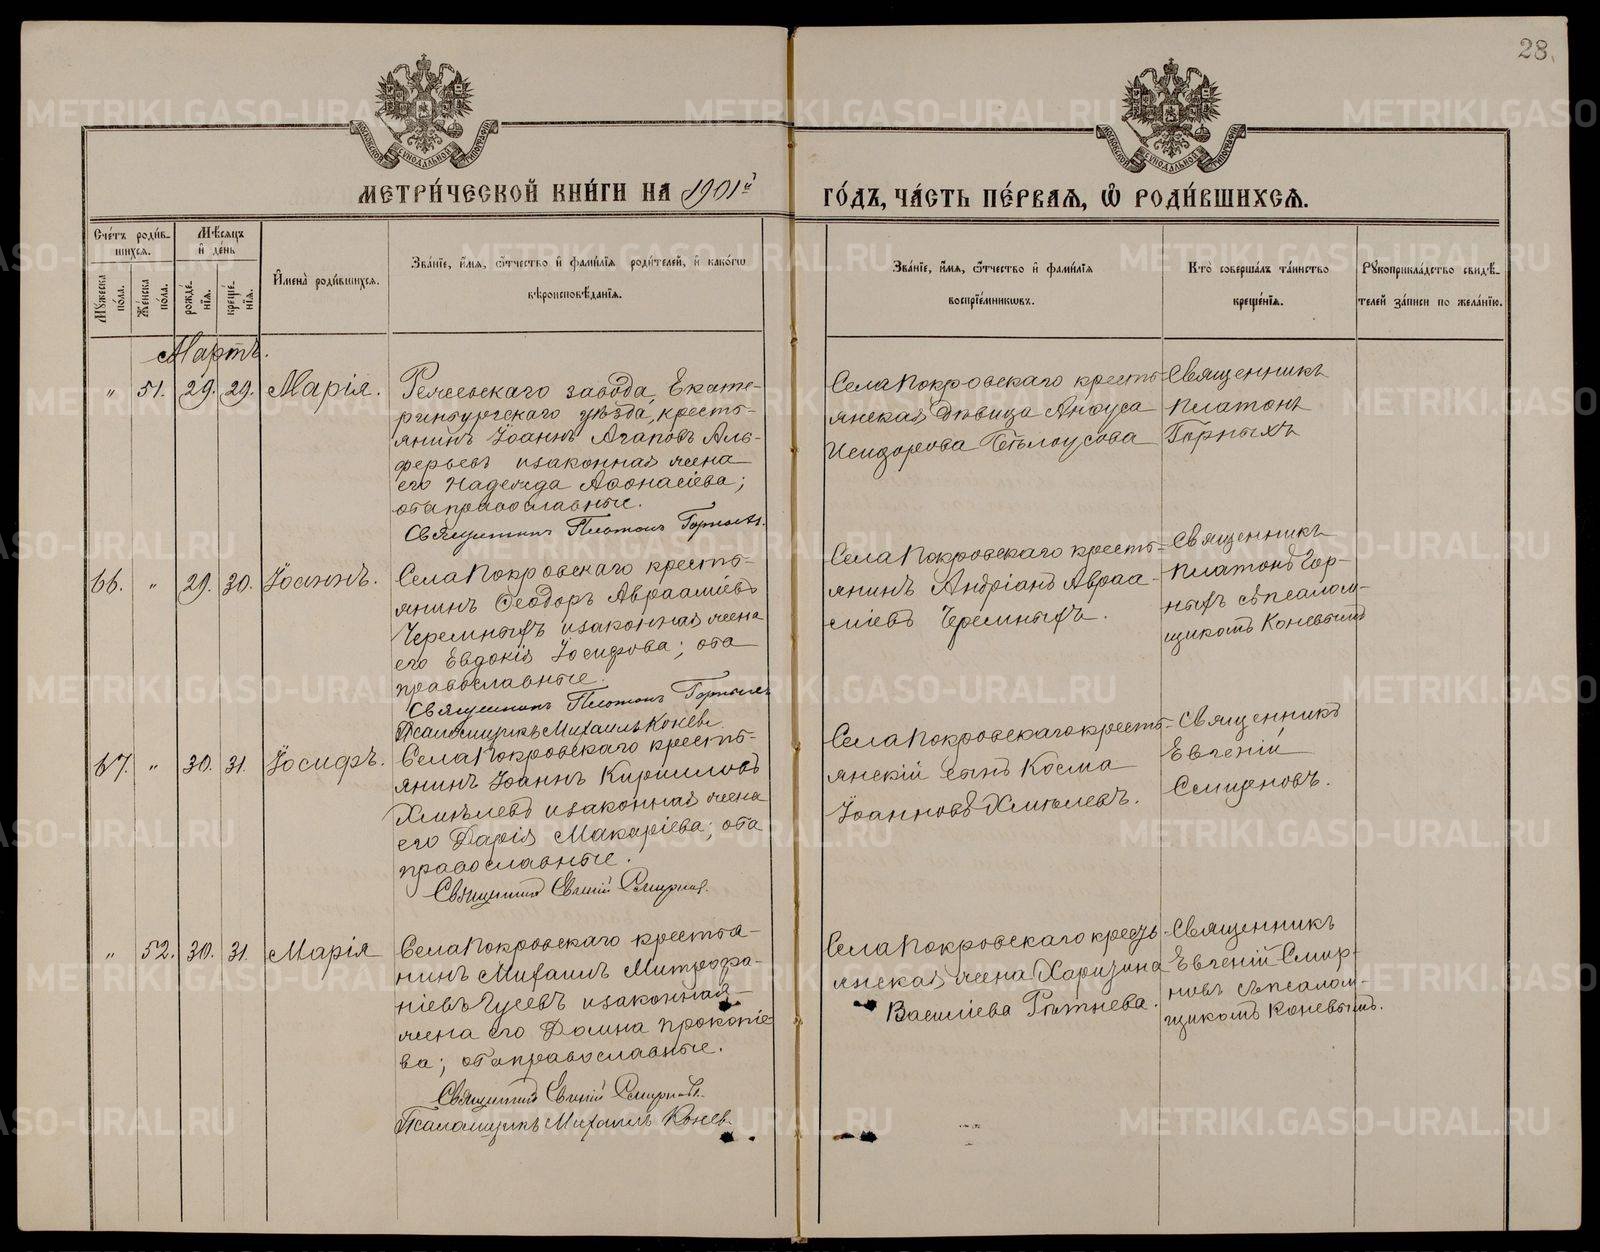 28.
МОСКОВСКОЙ СѴНОДАЛЬНОЙ ТИПОГРАФІИ
МОСКОВСКОЙ СѴНОДАЛЬНОЙ ТИПОГРАФІИ
МЕТРИ́ЧЕСКОЙ КНИ́ГИ НА 1901й
ГО́ДЪ, ЧА́СТЬ ПЕ́РВАЯ, Ѡ РОДИ́ВШИХСЯ.
Сче́тъ роди́в-
шихся.
Мꙋжеска по́ла.
Же́нска по́ла.
Мѣсяцъ
и де́нь
рожде́-нія.
креще́-нія.
Имена̀ роди́вшихся.
Зва́ніе, и́мя, ѻ́тчество и фами́лія роди́телей, и како́гѡ
вѣроисповѣ́данія.
Зва́ніе, и́мя, ѻ́тчество и фами́лія
воспріе́мниковъ.
Кто̀ соверша́лъ та́инство
креще́нія.
Рꙋкоприкла́дство свидѣ́-
телей за́писи по жела́нію.
Мартъ.
" 51. 29. 29. Марія.
Режевскаго завода, Екате-
ринбургскаго уѣзда, кресть-
янинъ Іоаннъ Агаповъ Аль-
ферьевъ и законная жена
его Надежда Аѳонасіева;
оба православные.
Священникъ Платонъ Горныхъ.
Села Покровскаго кресть-
янская дѣвица Анѳуса
Исидорова Бѣлоусова
Священникъ
Платонъ
Горныхъ
66. " 29. 30. Іоаннъ.
Села Покровскаго кресть-
янинъ Ѳеодоръ Авраамiевъ
Черемныхъ и законная жена
его Евдокія Іосифова; оба
православные.
Священникъ Платонъ Горныхъ
Псаломщикъ Михаилъ Коневъ
Села Покровскаго кресть-
янинъ Андріанъ Авраа-
міевъ Черемныхъ.
Священникъ
Платонъ Гор-
ныхъ съ псалом-
щикомъ Коневымъ
67. " 30. 31. Іосифъ.
Села Покровскаго кресть-
янинъ Іоаннъ Кирилловъ
Хмѣлевъ и законная жена
его Дарія Макаріева; оба
православные.
Священникъ Евгеній Смирновъ.
Села Покровскаго кресть-
янскій сынъ Косма
Іоанновъ Хмѣлевъ.
Священникъ
Евгеній
Смирновъ.
" 52. 30. 31. Марія
Села Покровскаго крестья-
нинъ Михаилъ Митрофа-
ніевъ Гусевъ и законная
жена его Домна Прокопіе-
ва; оба православные.
Священникъ Евгеній Смирновъ.
Псаломщикъ Михаилъ Коневъ
Села Покровскаго кресть-
янская жена Харитина
Василіева Рѣтнева.
Священникъ
Евгеній Смир-
новъ съ псалом-
щикомъ Коневымъ.
METRIKI.GASO-URAL.RU